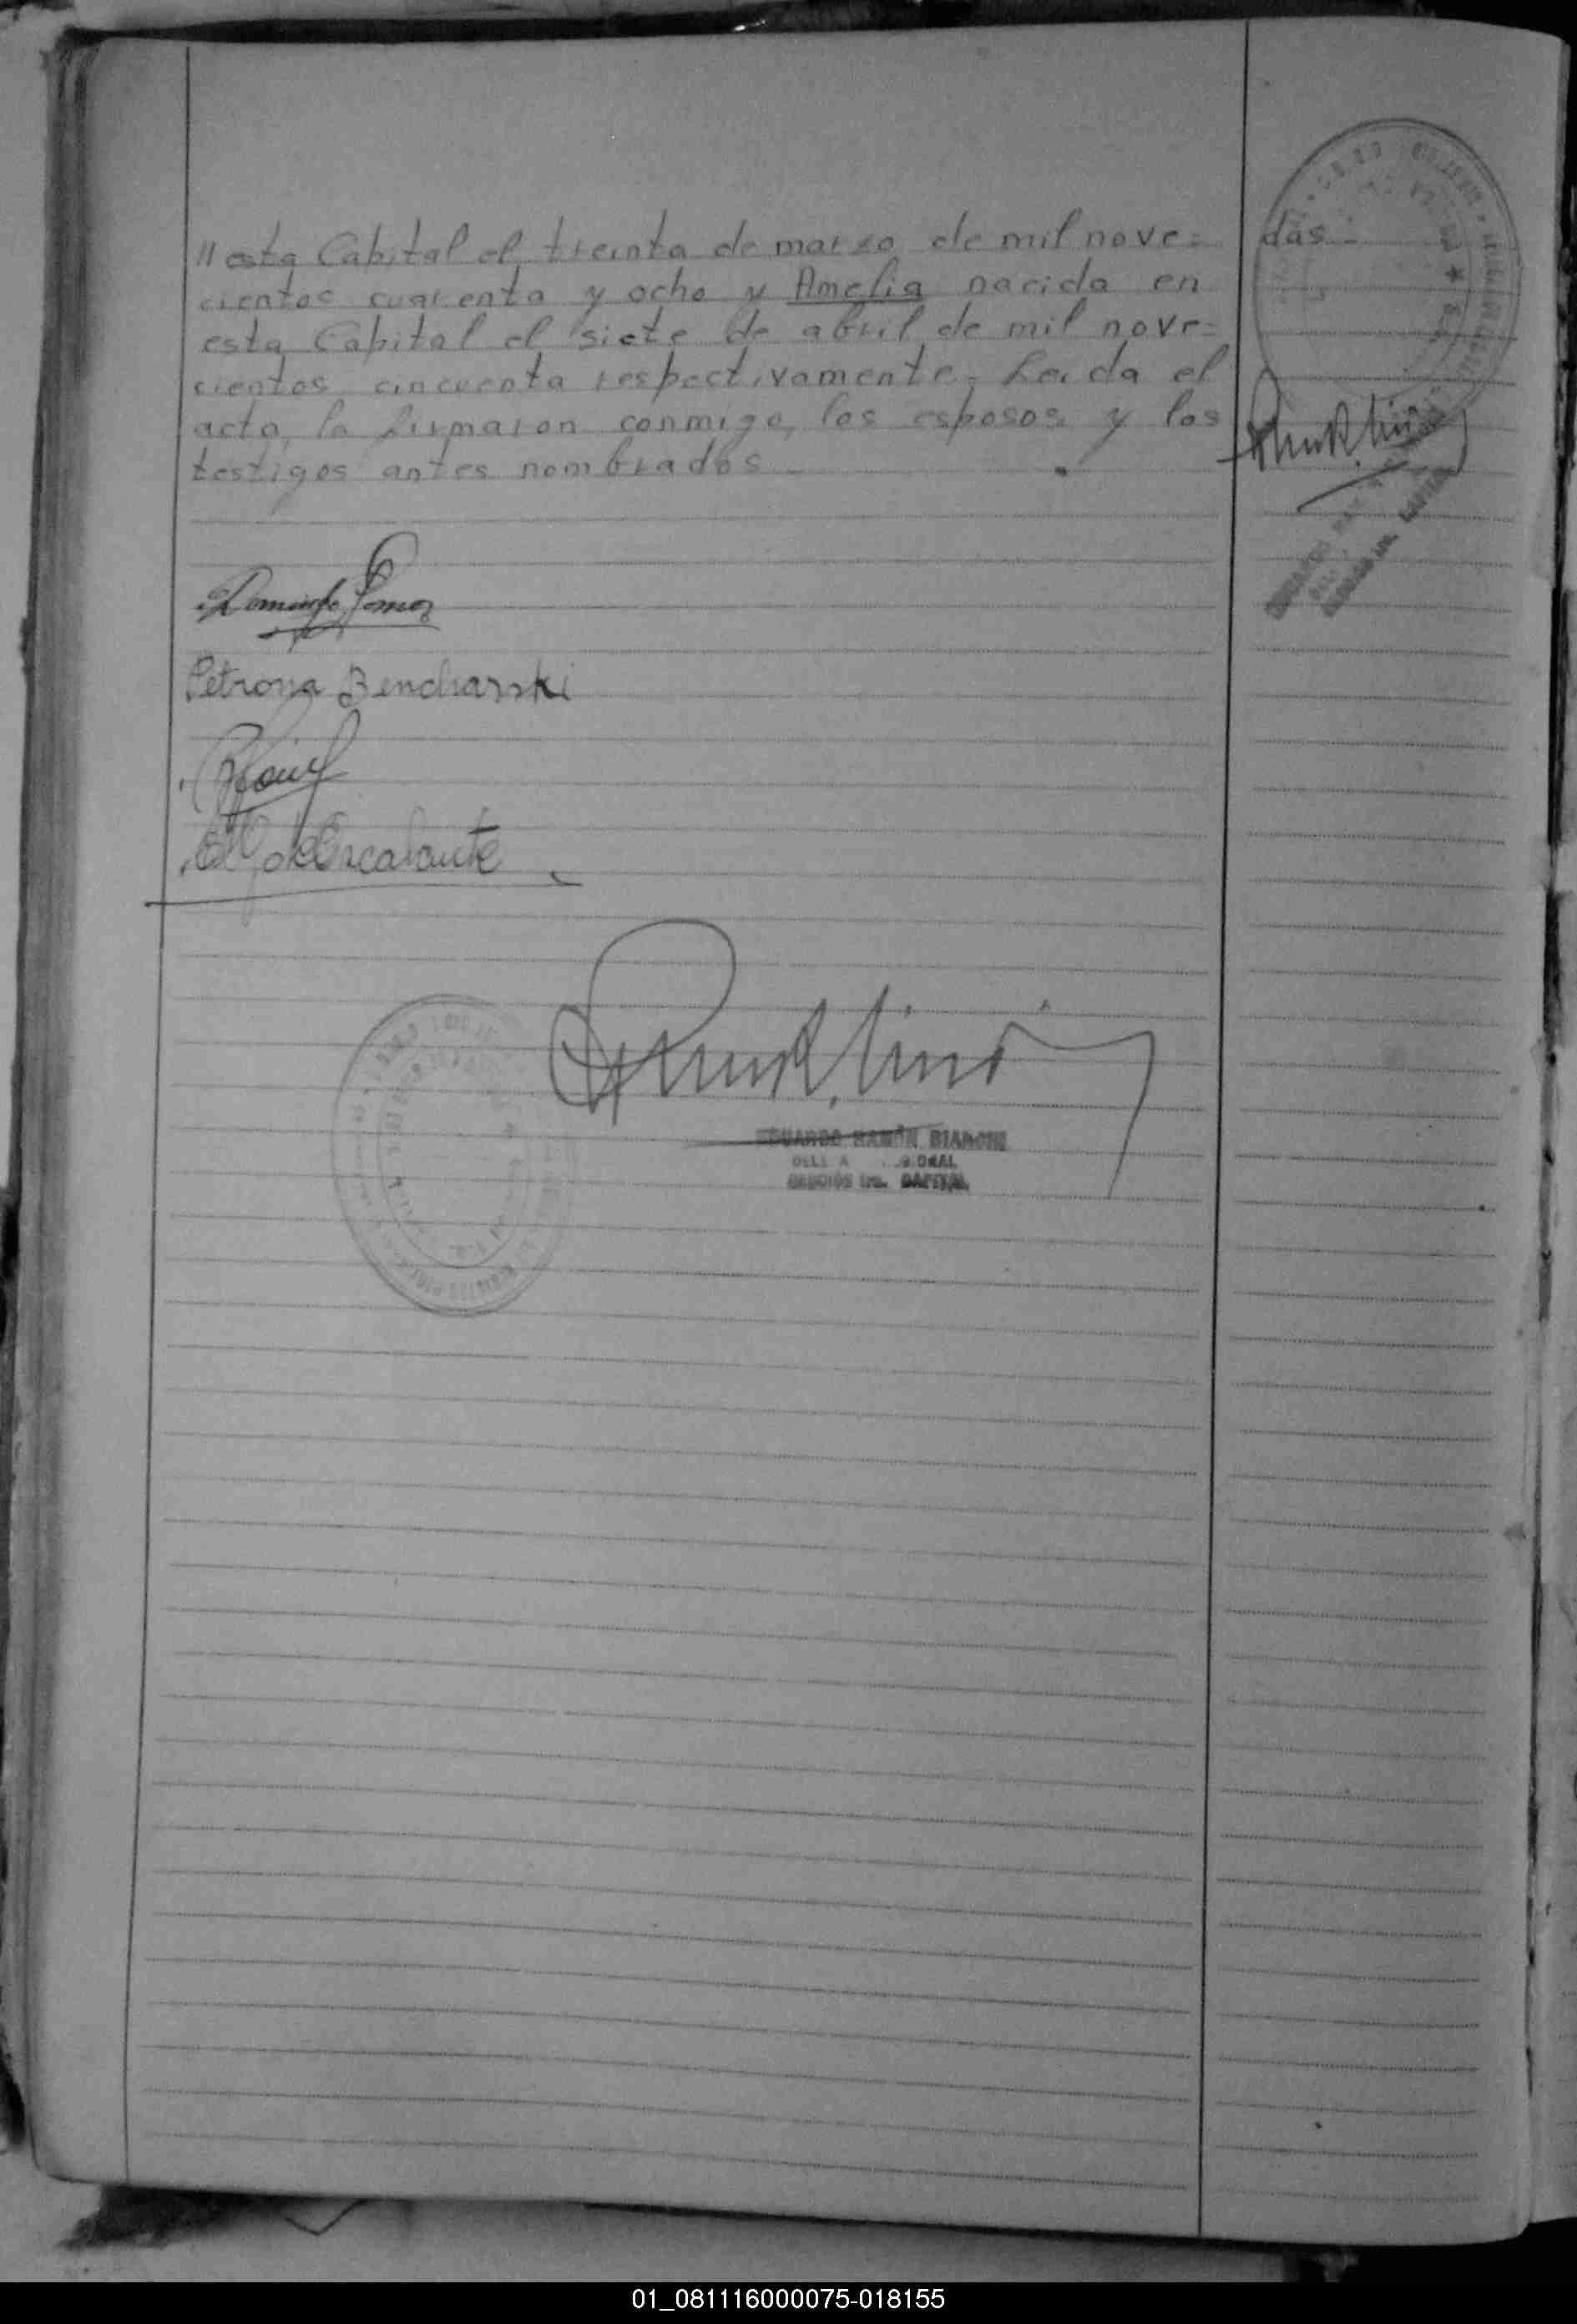 // esta Capital el treinta de marzo de mil nove=
cientos cuarenta y ocho y Amelia nacida en
esta Capital el siete de abril de mil nove=
cientos cincuenta respectivamente.- Leida el
acta, la firmaron conmigo, los esposos y los
testigos antes nombrados
das
Petrona Bencharski
Escalante
EDUARDO RAMÓN BIANCHI
SECCIÓN 1ra. CAPITAL
01_081116000075-018155